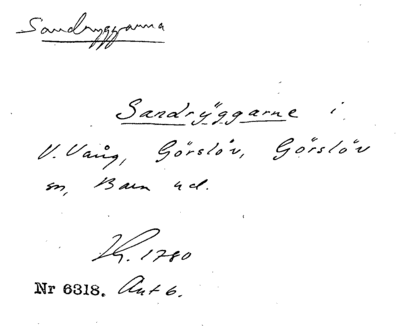 Sandryggarna
Sandrÿggarne i
V. Vång, Görslöv, Görslöv
sn, Bara hd.
1780
Nr 6318. Akt 6.